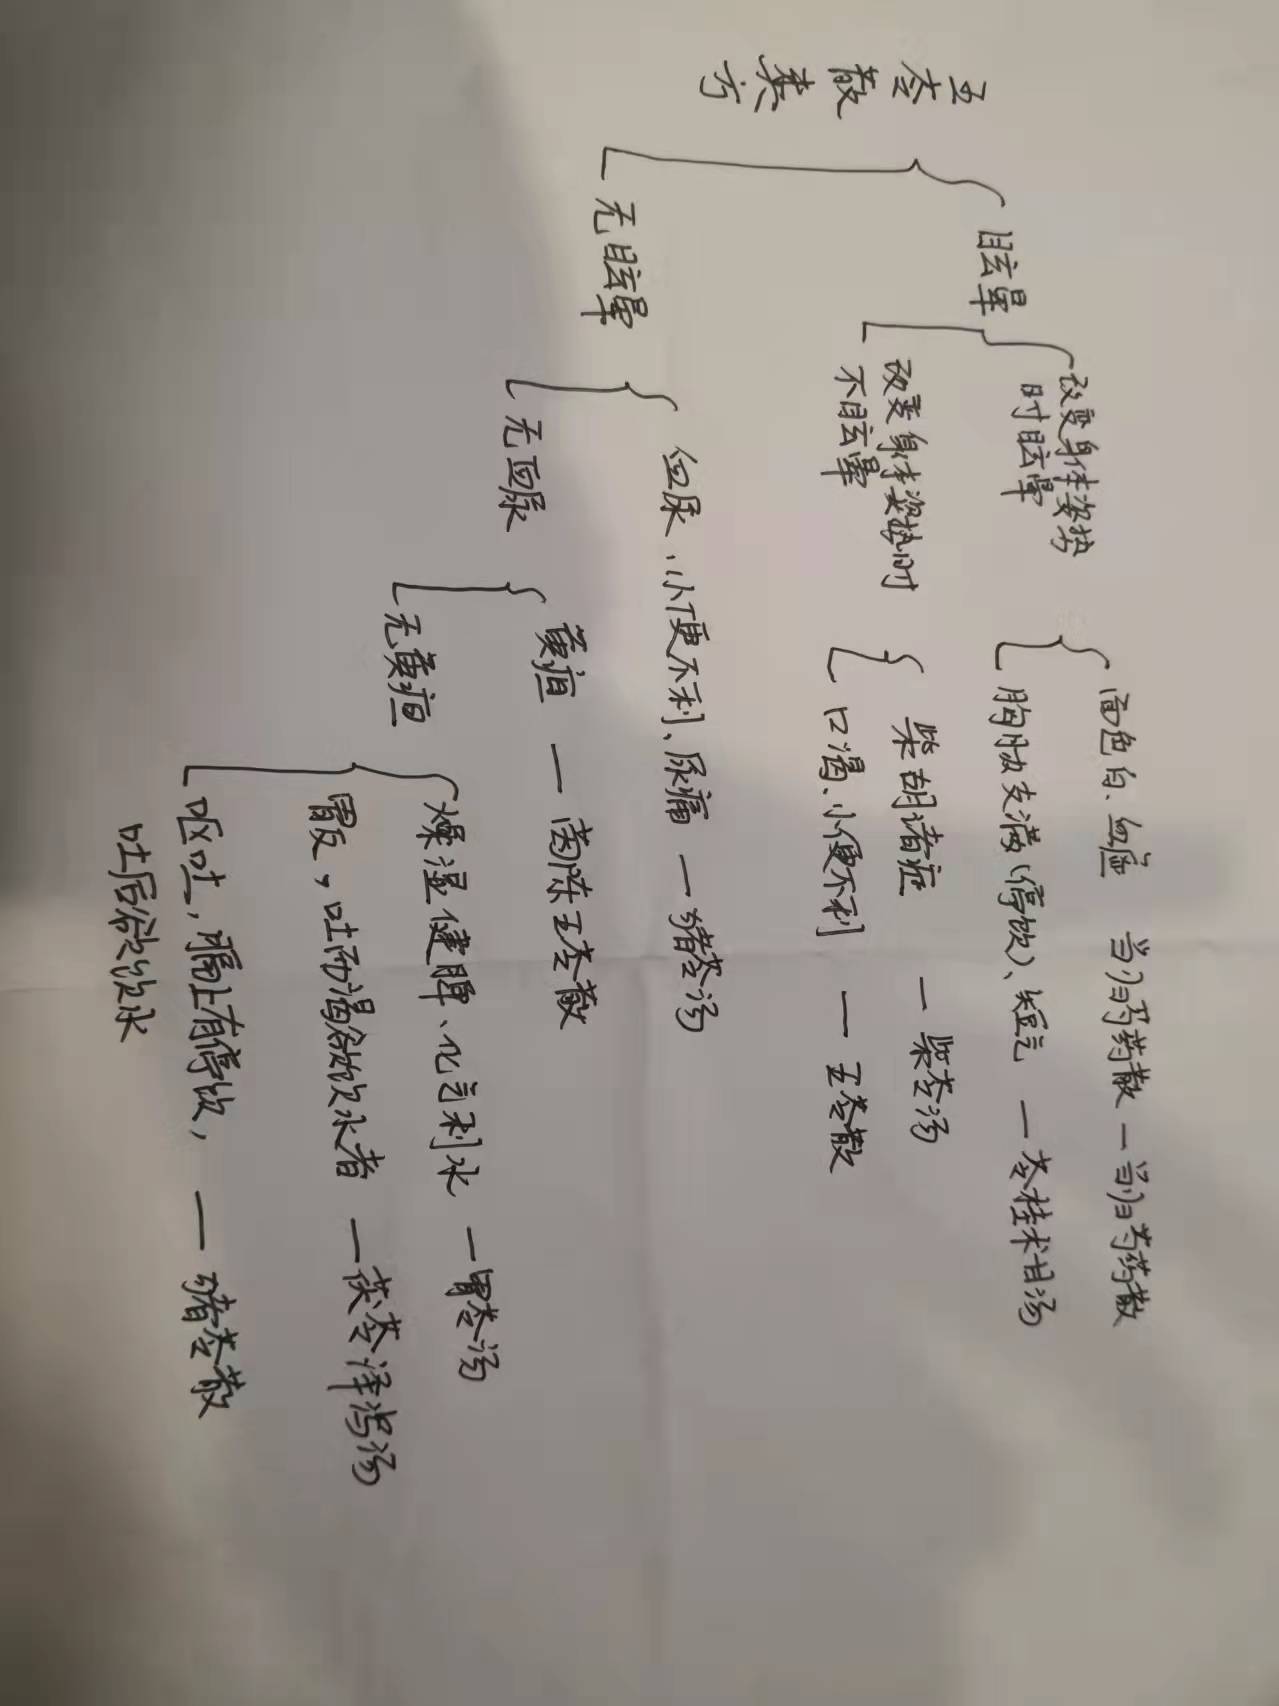 五苓散类方
眩晕
改变身体姿势
时眩晕
面色白、血虚 当归芍药散 — 当归芍药散
胸胁支满(停饮)、短气 — 苓桂术甘汤
改变身体姿势时
不眩晕
柴胡诸症 — 柴苓汤
口渴、小便不利 — 五苓散
无眩晕
血尿、小便不利、尿痛 — 猪苓汤
无血尿
黄疸 — 茵陈五苓散
无黄疸
燥湿健脾、化气利水 — 胃苓汤
胃反,吐而渴欲饮水者 — 茯苓泽泻汤
呕吐,膈上有停饮, — 猪苓散
吐后欲饮水